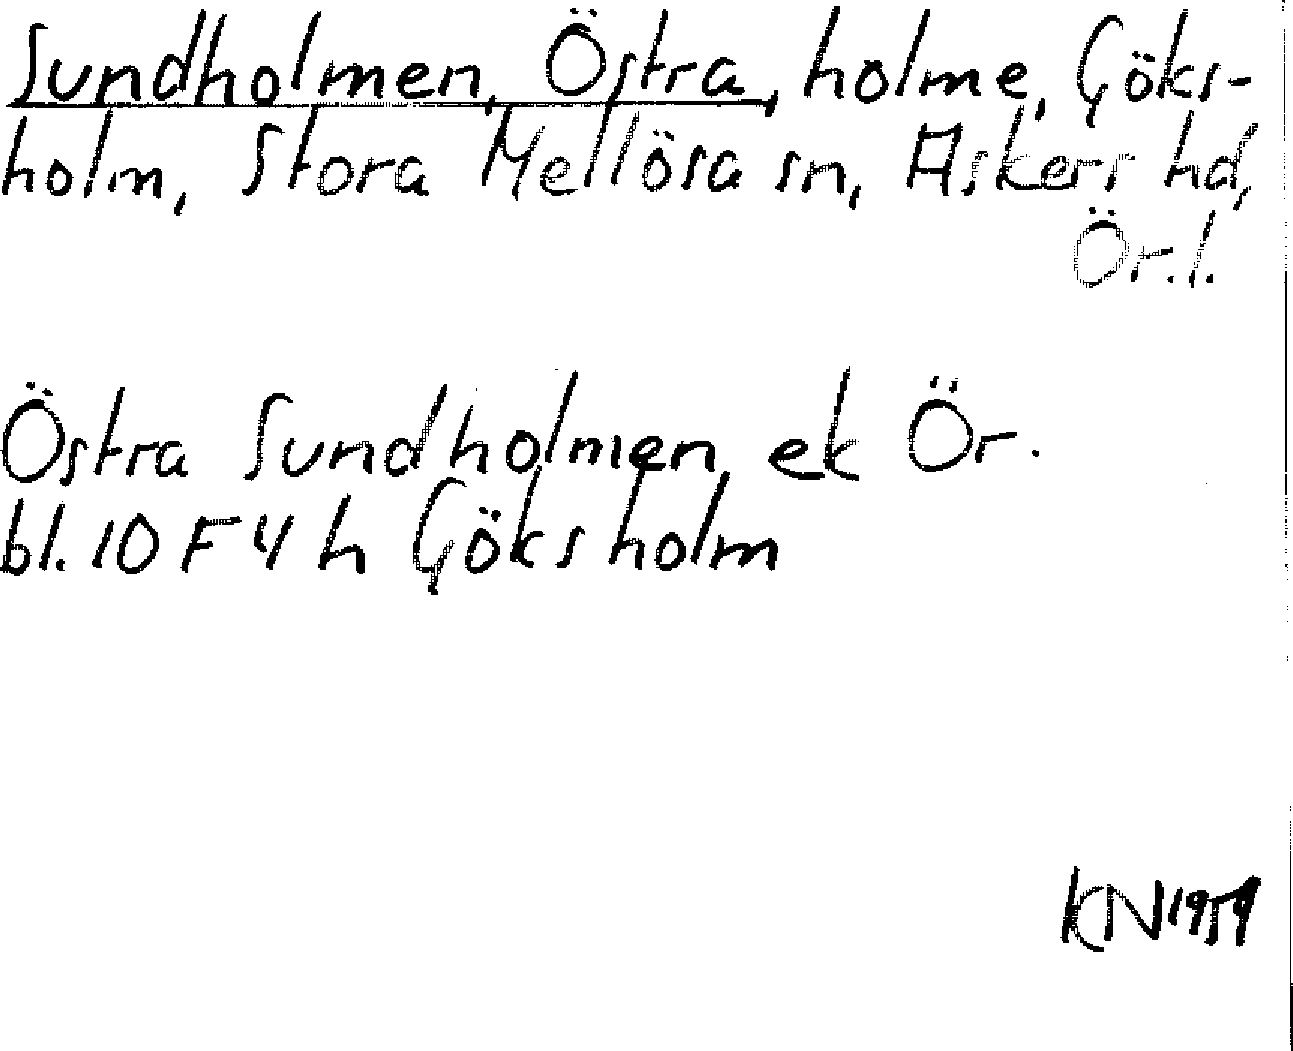 Sundholmen, Östra, holme, Göks-
holm, Stora Mellösa sn, Askers hd,
Ör.l.
Östra Sundholmen ek Ör.
bl. 10 F 4 h Göksholm
KN 1959